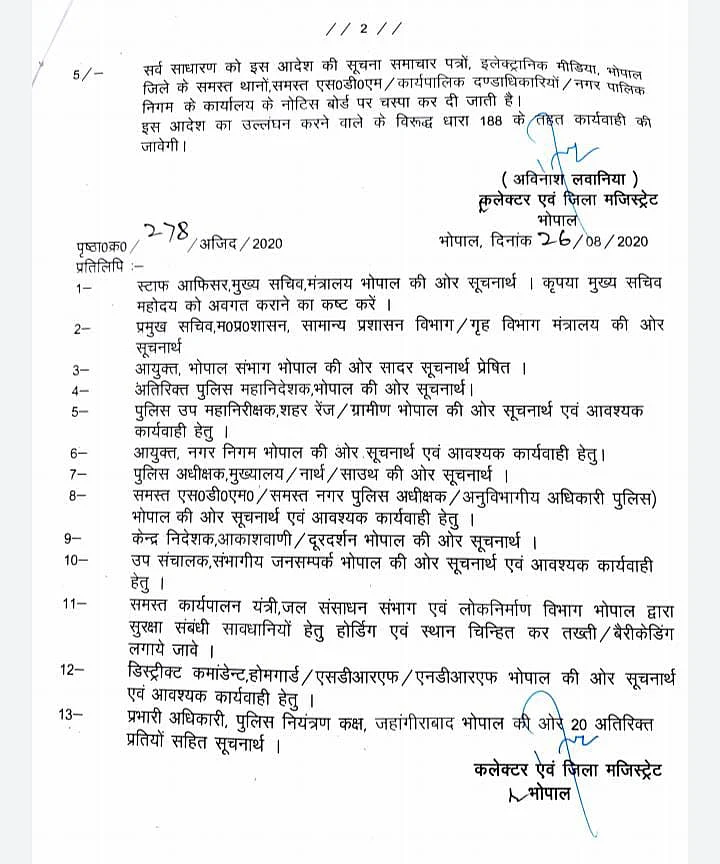 // 2 //
5/— सर्व साधारण को इस आदेश की सूचना समाचार पत्रों, इलेक्ट्रानिक मीडिया, भोपाल
जिले के समस्त थानों,समस्त एस0डी0एम/कार्यपालिक दण्डाधिकारियों/नगर पालिक
निगम के कार्यालय के नोटिस बोर्ड पर चस्पा कर दी जाती है।
इस आदेश का उल्लंघन करने वाले के विरूद्ध धारा 188 के तहत कार्यवाही की
जावेगी।
( अविनाश लवानिया )
कलेक्टर एवं जिला मजिस्ट्रेट
भोपाल
पृष्ठा0क्र0/278/अजिद/2020 भोपाल, दिनांक 26/08/2020
प्रतिलिपि :—
1— स्टाफ आफिसर,मुख्य सचिव,मंत्रालय भोपाल की ओर सूचनार्थ । कृपया मुख्य सचिव
महोदय को अवगत कराने का कष्ट करें ।
2— प्रमुख सचिव,म0प्र0शासन, सामान्य प्रशासन विभाग/गृह विभाग मंत्रालय की ओर
सूचनार्थ
3— आयुक्त, भोपाल संभाग भोपाल की ओर सादर सूचनार्थ प्रेषित ।
4— अतिरिक्त पुलिस महानिदेशक,भोपाल की ओर सूचनार्थ।
5— पुलिस उप महानिरीक्षक,शहर रेंज/ग्रामीण भोपाल की ओर सूचनार्थ एवं आवश्यक
कार्यवाही हेतु ।
6— आयुक्त, नगर निगम भोपाल की ओर सूचनार्थ एवं आवश्यक कार्यवाही हेतु।
7— पुलिस अधीक्षक,मुख्यालय/नार्थ/साउथ की ओर सूचनार्थ ।
8— समस्त एस0डी0एम0/समस्त नगर पुलिस अधीक्षक/अनुविभागीय अधिकारी पुलिस)
भोपाल की ओर सूचनार्थ एवं आवश्यक कार्यवाही हेतु ।
9— केन्द्र निदेशक,आकाशवाणी/दूरदर्शन भोपाल की ओर सूचनार्थ ।
10— उप संचालक,संभागीय जनसम्पर्क भोपाल की ओर सूचनार्थ एवं आवश्यक कार्यवाही
हेतु ।
11— समस्त कार्यपालन यंत्री,जल संसाधन संभाग एवं लोकनिर्माण विभाग भोपाल द्वारा
सुरक्षा संबंधी सावधानियों हेतु होर्डिग एवं स्थान चिन्हित कर तख्ती/बैरीकेडिंग
लगाये जावे ।
12— डिस्ट्रीक्ट कमांडेन्ट,होमगार्ड/एसडीआरएफ/एनडीआरएफ भोपाल की ओर सूचनार्थ
एवं आवश्यक कार्यवाही हेतु ।
13— प्रभारी अधिकारी, पुलिस नियंत्रण कक्ष, जहांगीराबाद भोपाल की ओर 20 अतिरिक्त
प्रतियों सहित सूचनार्थ ।
कलेक्टर एवं जिला मजिस्ट्रेट
भोपाल